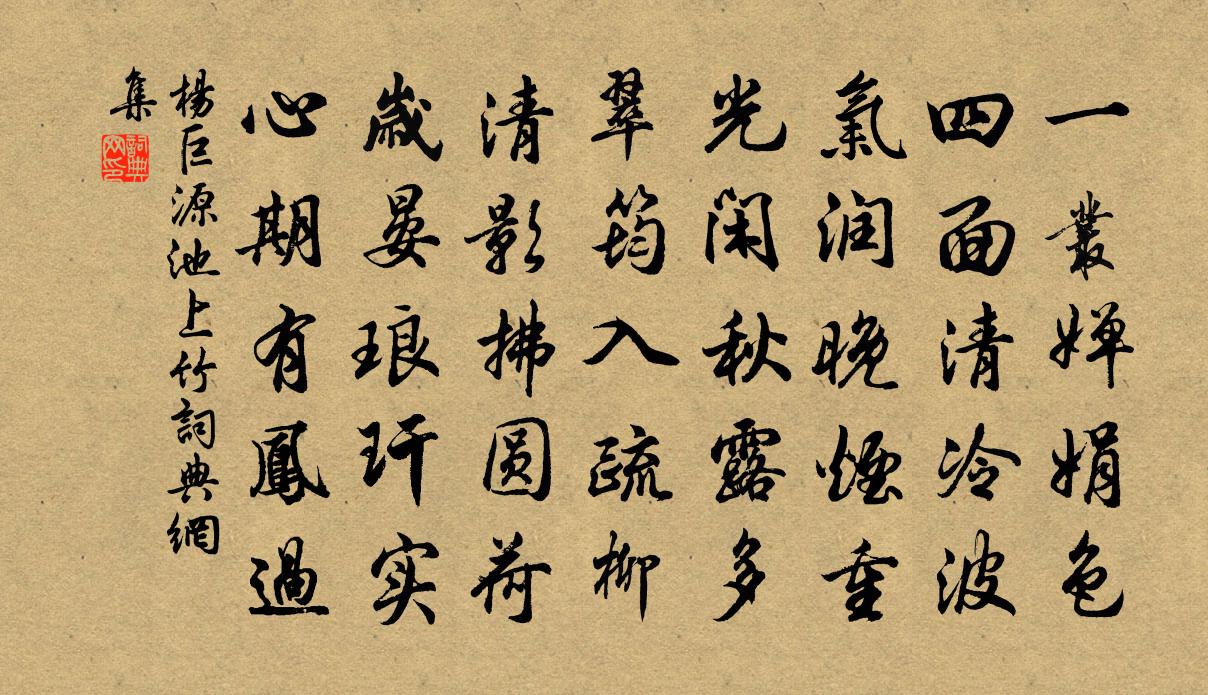 一叢嬋娟色
四面清冷波
氣润晚煙重
光闲秋露多
翠筠入疏柳
清影拂圆荷
歲晏琅玕实
心期有鳳過
楊巨源池上竹詞典網
集
詞典
网印